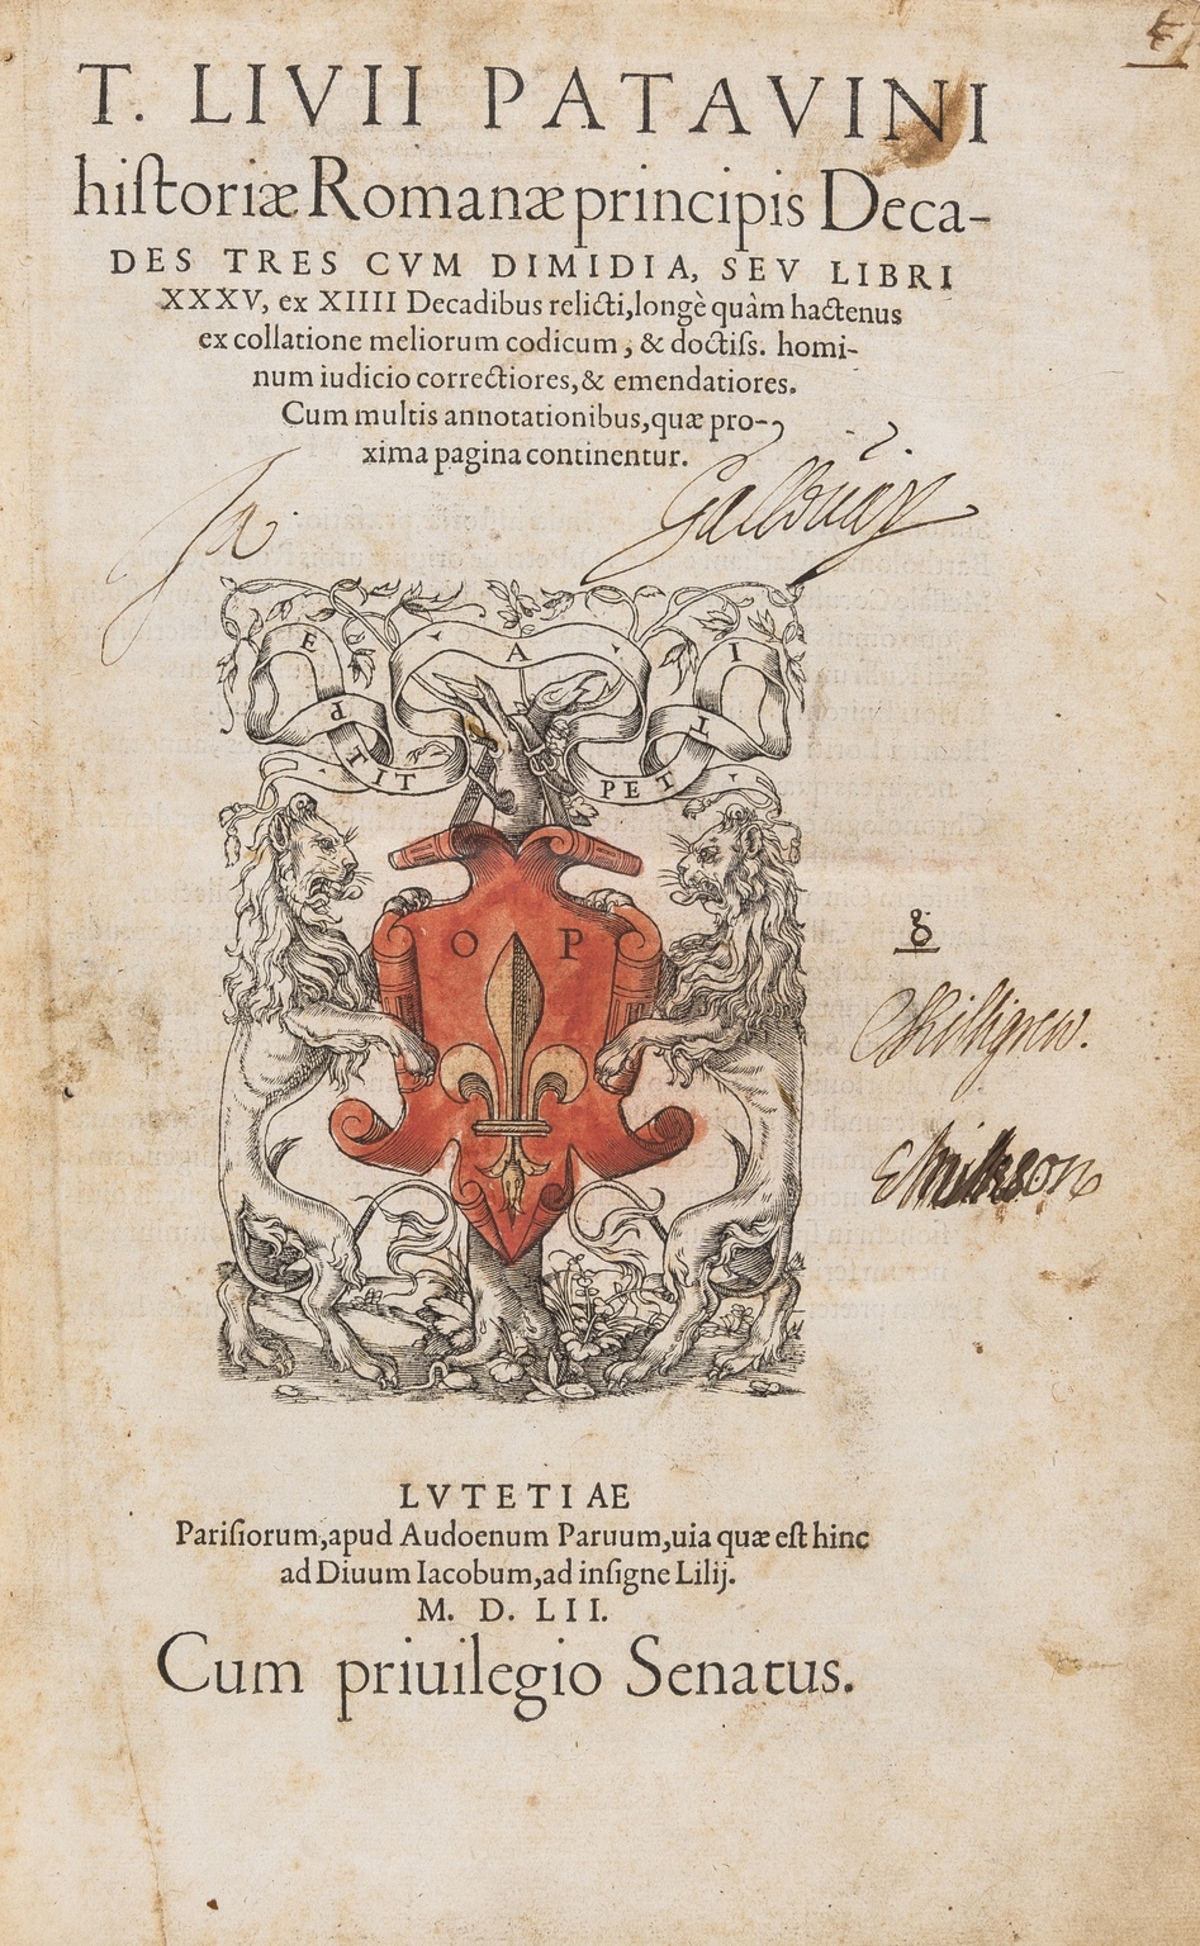 T. LIVII PATAVINI
hiſtoriæ Romanæ principis Deca-
DES TRES CVM DIMIDIA, SEV LIBRI
XXXV, ex XIIII Decadibus relicti, longè quàm hactenus
ex collatione meliorum codicum, & doctiſs. homi-
num iudicio correctiores, & emendatiores.
Cum multis annotationibus, quæ pro-
xima pagina continentur.
O P
8
Killigrew.
LVTETIAE
Pariſiorum, apud Audoenum Paruum, uia quæ eſt hinc
ad Diuum Iacobum, ad inſigne Lilij.
M. D. LII.
Cum priuilegio Senatus.